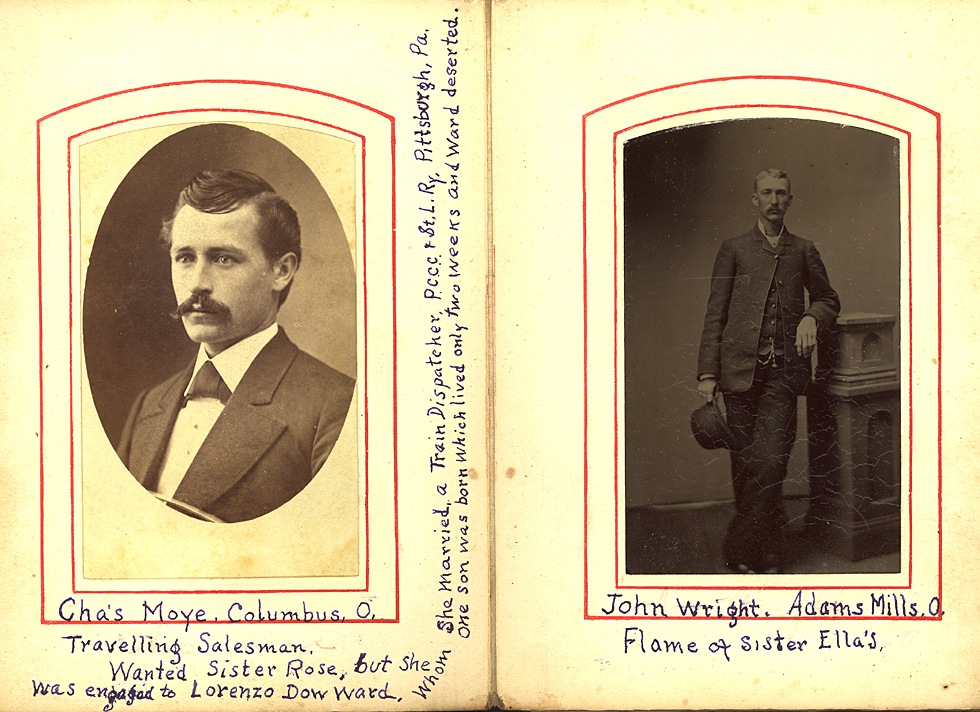 Cha's Moye. Columbus, O.
Travelling Salesman.
Wanted Sister Rose, but She
was engaged to Lorenzo Dow Ward,
Whom She married, a Train Dispatcher, P.C.C.C. & St. L. Ry, Pittsburgh, Pa.
One son was born which lived only two weeks and Ward deserted.
John Wright. Adams Mills, O.
Flame of Sister Ella's,